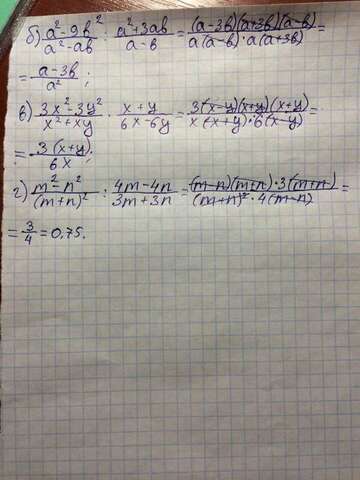 б) (a²-9b²)/(a²-ab) : (a²+3ab)/(a-b) = ((a-3b)(a+3b)(a-b))/(a(a-b)·a(a+3b)) =
= (a-3b)/a² ;
в) (3x²-3y²)/(x²+xy) · (x+y)/(6x-6y) = (3(x-y)(x+y)(x+y))/(x(x+y)·6(x-y)) =
= (3(x+y))/(6x) ;
г) (m²-n²)/(m+n)² : (4m-4n)/(3m+3n) = ((m-n)(m+n)·3(m+n))/((m+n)²·4(m-n)) =
= 3/4 = 0,75.